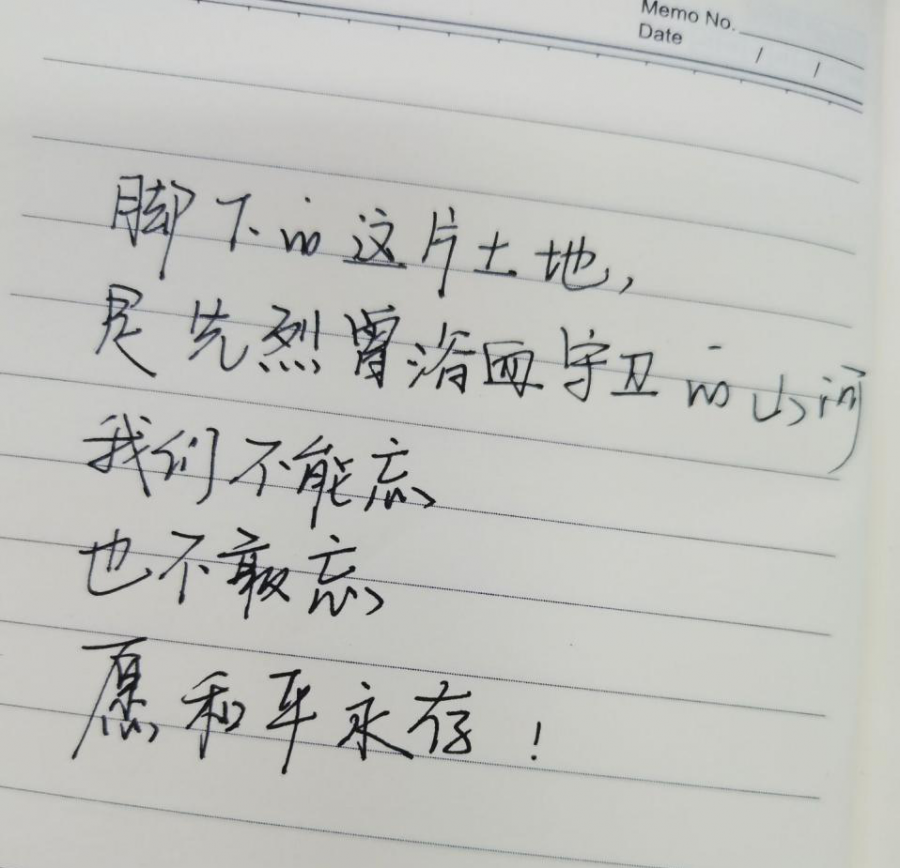 Memo No.
Date / /
脚下的这片土地,
是先烈曾浴血守卫的山河
我们不能忘
也不敢忘
愿和平永存!